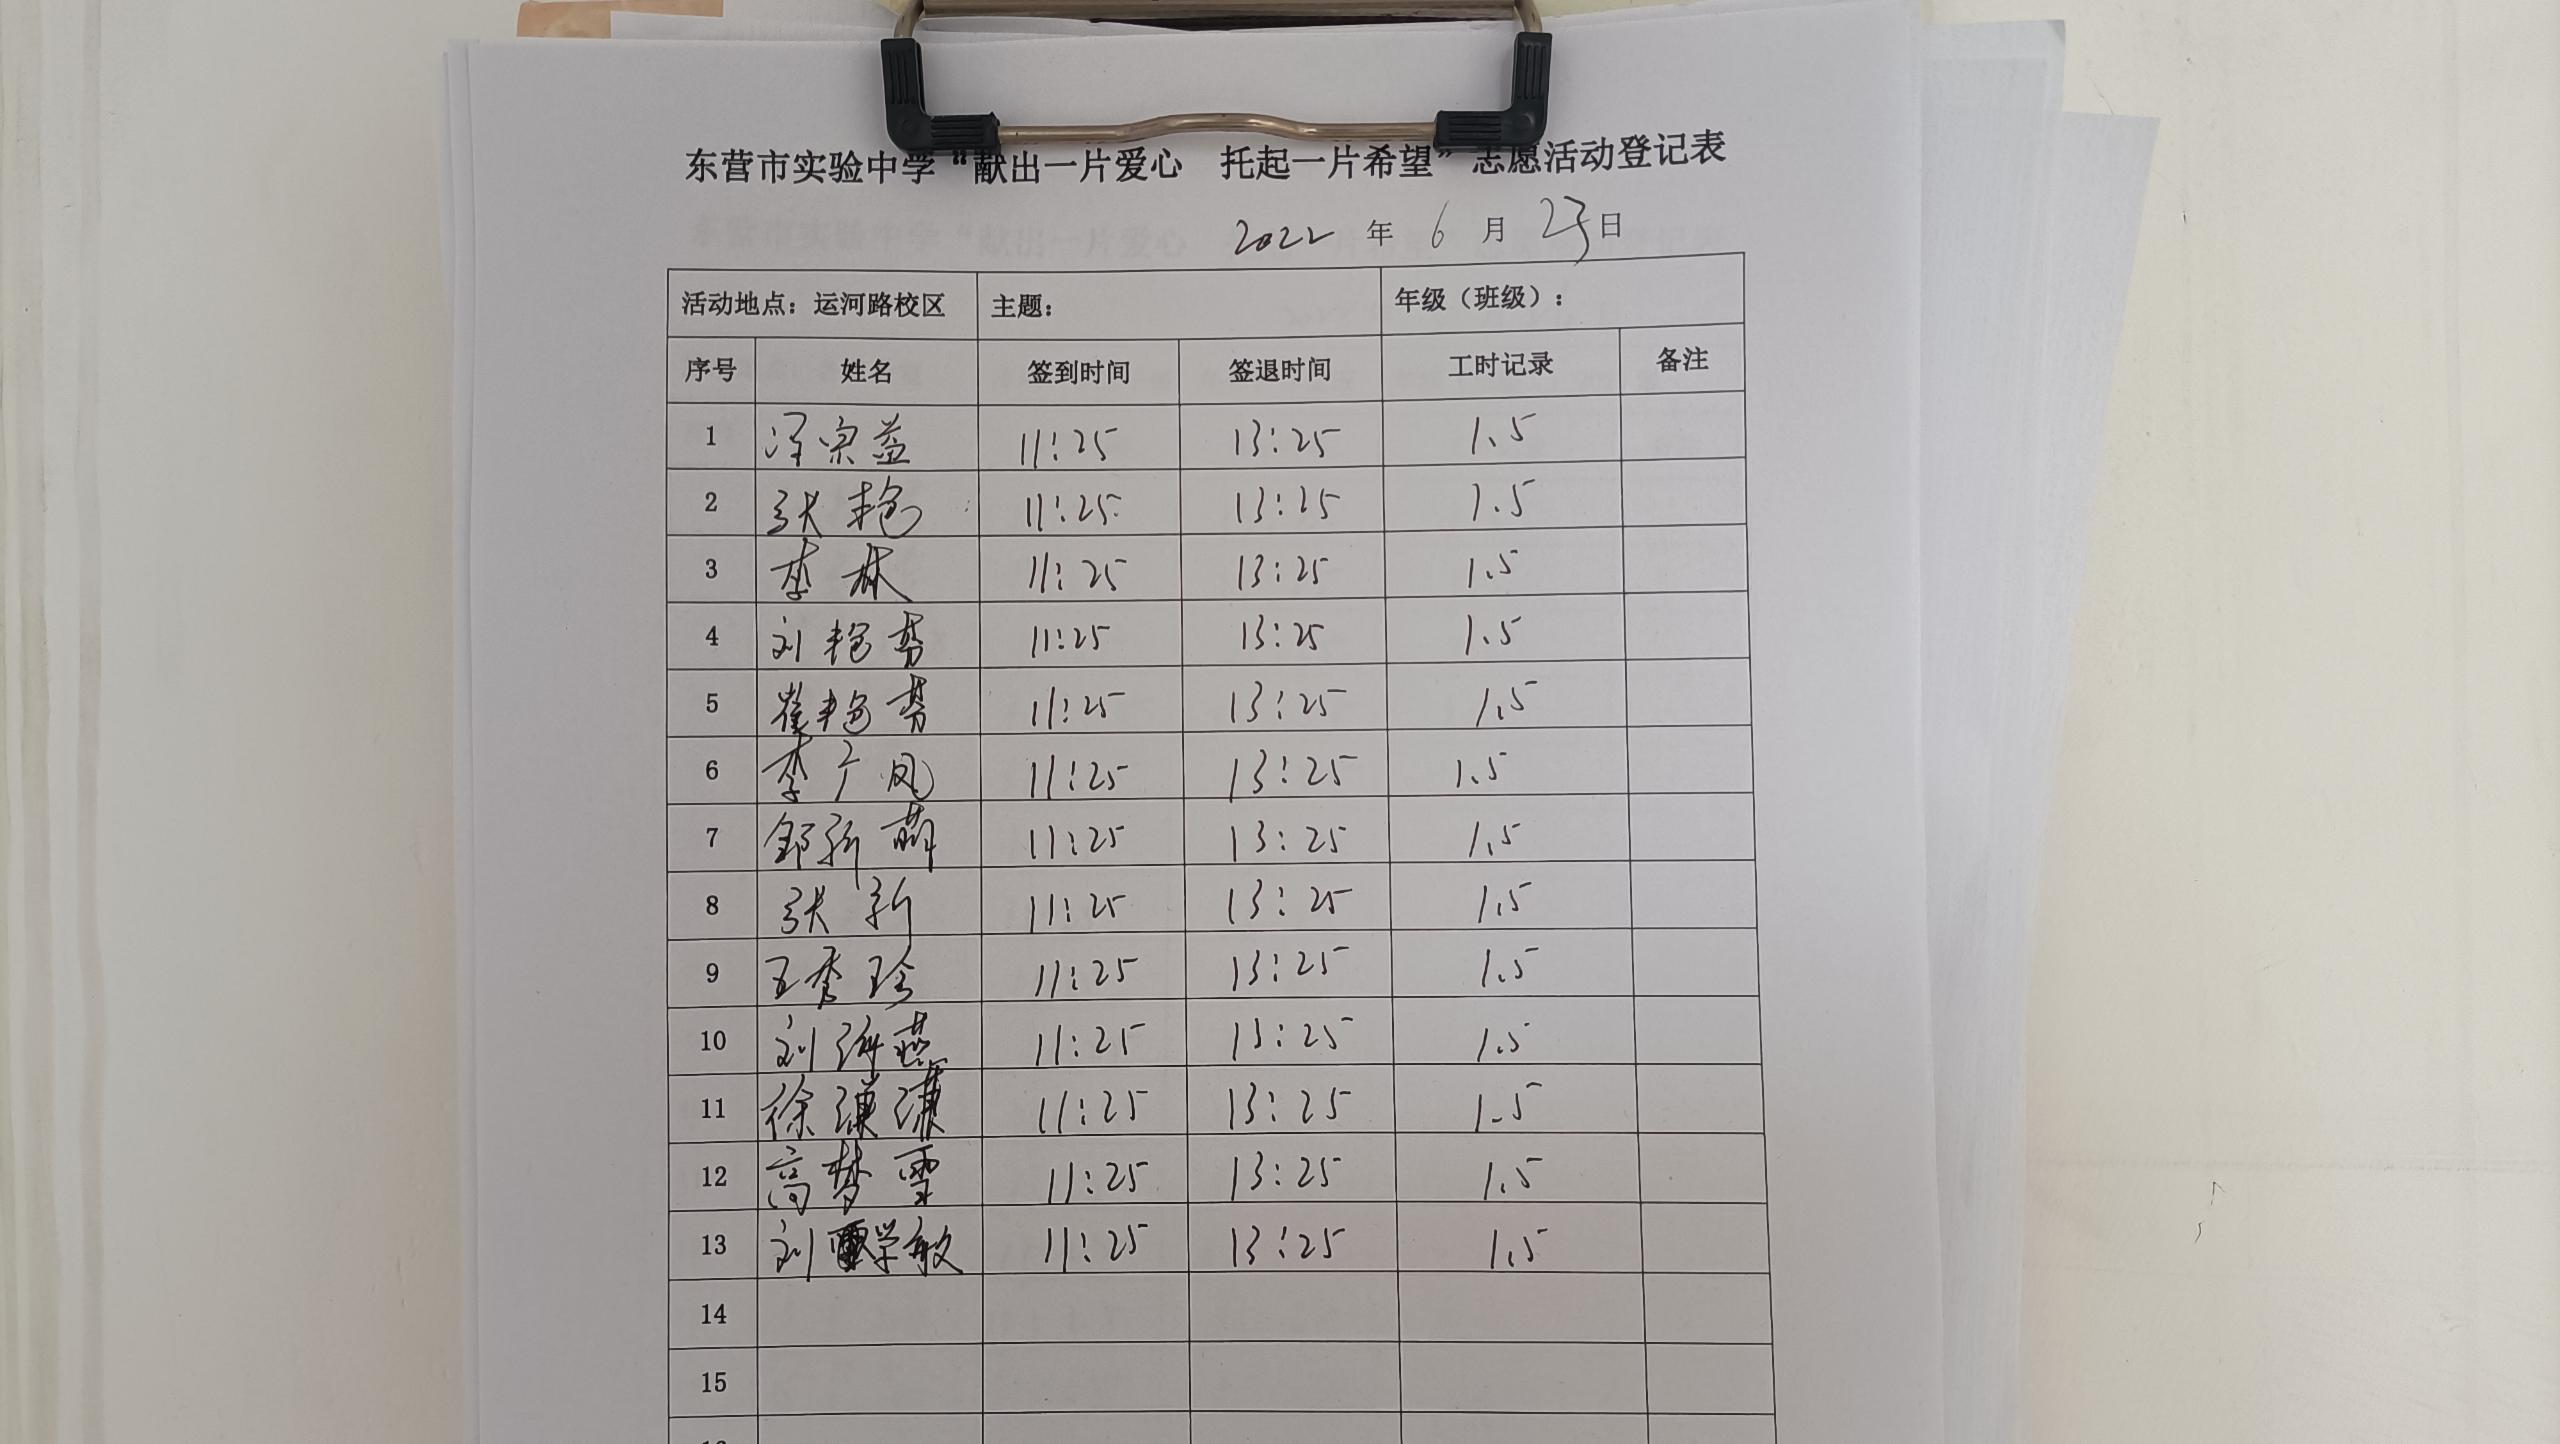 东营市实验中学“献出一片爱心 托起一片希望”志愿活动登记表
2022 年 6 月 23 日
活动地点：运河路校区 主题： 年级（班级）：
序号 姓名 签到时间 签退时间 工时记录 备注
1 冯宗益 11:25 13:25 1.5
2 张艳 11:25 13:25 1.5
3 李林 11:25 13:25 1.5
4 刘艳芬 11:25 13:25 1.5
5 崔艳芬 11:25 13:25 1.5
6 李广凤 11:25 13:25 1.5
7 新萌 11:25 13:25 1.5
8 张新 11:25 13:25 1.5
9 王秀珍 11:25 13:25 1.5
10 刘海燕 11:25 13:25 1.5
11 徐 11:25 13:25 1.5
12 高梦雪 11:25 13:25 1.5
13 刘学敏 11:25 13:25 1.5
14
15